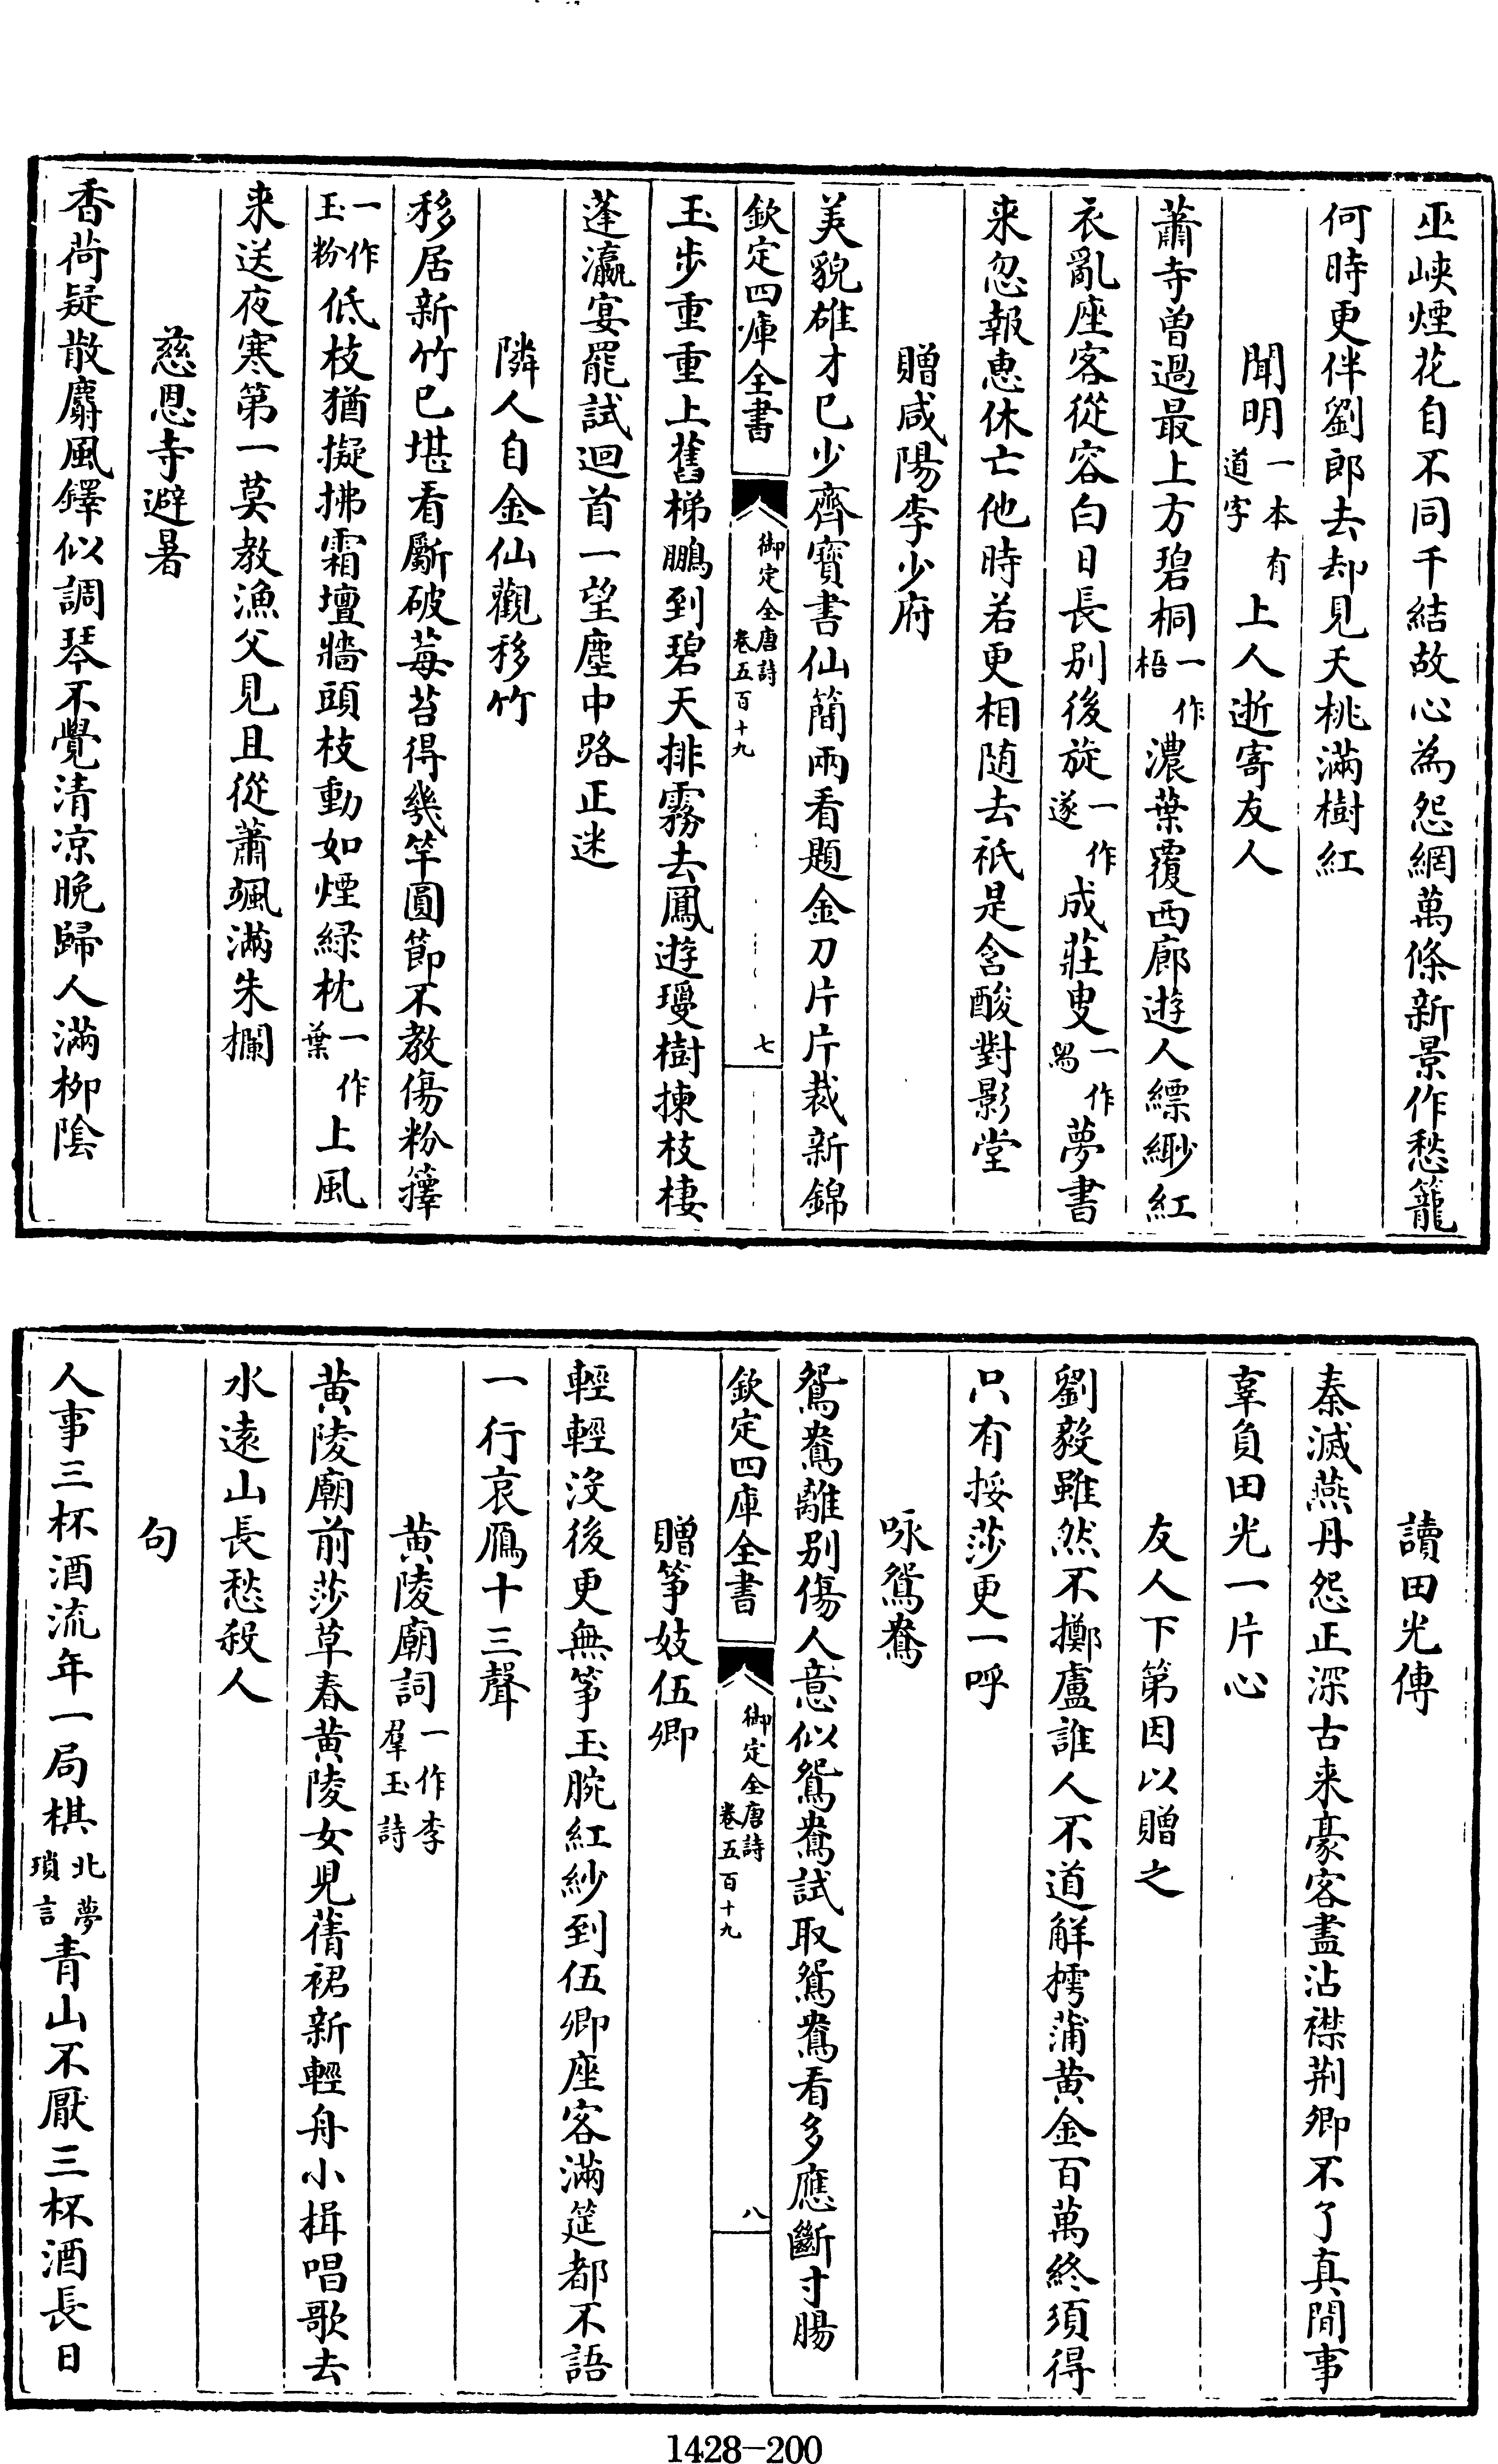 巫峽煙花自不同千結故心為怨網萬條新景作愁籠
何時更伴劉郎去却見夭桃滿樹紅
聞明一本有道字上人逝寄友人
蕭寺曽過最上方碧桐一作梧濃葉覆西廊遊人縹緲紅
衣亂座客從容白日長别後旋一作遂成莊叟一作舄夢書
来忽報惠休亡他時若更相随去祇是含酸對影堂
贈咸陽李少府
美貌雄才已少齊寳書仙簡兩看題金刀片片裁新錦
欽定四庫全書 御定全唐詩卷五百十九 七
玉步重重上舊梯鵬到碧天排霧去鳳遊璦樹揀枝棲
蓬瀛宴罷試迴首一望塵中路正迷
隣人自金仙觀移竹
移居新竹已堪看斸破莓苔得幾竿圓節不教傷粉籜
一作玉粉低枝猶擬拂霜壇牆頭枝動如煙緑枕一作葉上風
来送夜寒第一莫教漁父見且從蕭颯滿朱欄
慈恩寺避暑
香荷疑散麝風鐸似調琴不覺清凉晚歸人滿栁陰
讀田光傳
秦滅燕丹怨正深古来豪客盡沾襟荆卿不了真閒事
辜負田光一片心
友人下第因以贈之
劉毅雖然不擲盧誰人不道解樗蒲黄金百萬終須得
只有挼莎更一呼
咏鴛鴦
鴛鴦離别傷人意似鴛鴦試取鴛鴦看多應斷寸腸
欽定四庫全書 御定全唐詩卷五百十九 八
贈筝妓伍卿
輕輕沒後更無筝玉腕紅紗到伍卿座客滿筵都不語
一行哀鴈十三聲
黄陵廟詞一作李羣玉詩
黄陵廟前莎草春黄陵女兒蒨裙新輕舟小楫唱歌去
水遠山長愁殺人
句
人事三杯酒流年一局棋北夢瑣言青山不厭三杯酒長日
1428-200